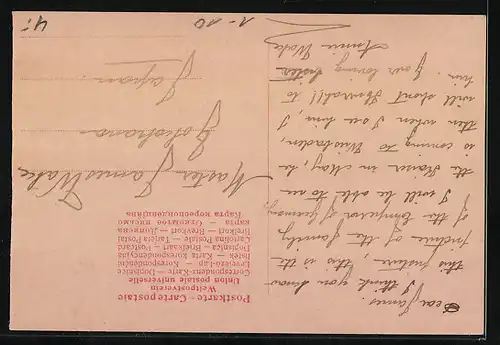 Postkarte - Carte postale
Weltpostverein
Union postale universelle
Correspondenz-Karte - Dopisnice
Levelező-Lap - Korrespondenčni
lístek - Karta korespondencyjna
Dopisnica - Briefkaart - Postcard
Cartolina Postale - Tarjeta Postal
Brefkort - Brevkort
карта - Открытое письмо
Карта корреспонденціи
Master James Wake
Yokohama
Japan.
4:
1-10
Dear James.
I think you know
this picture, this is the
picture of the family
of the Emperor of Germany.
I will be able to see
the Kaiser in May, he
is coming to Wiesbaden.
then when I see him, I
will shout Hurrah!! to
him. Your loving sister
Annie Wake